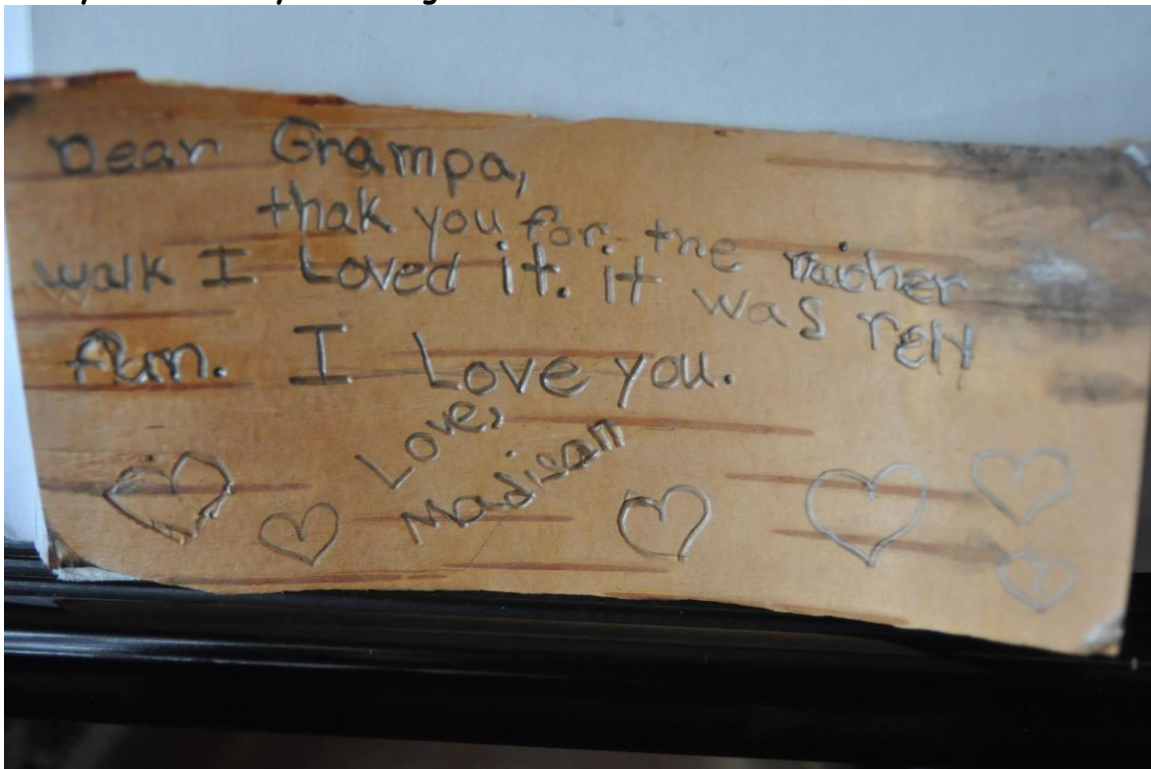 Dear Grampa,
thak you for the naicher
walk I Loved it. it was rely
fun. I Love you.
Love,
Madison